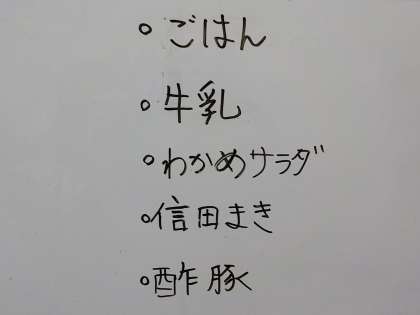 ○ ごはん
○ 牛乳
○ わかめサラダ
○ 信田まき
○ 酢豚